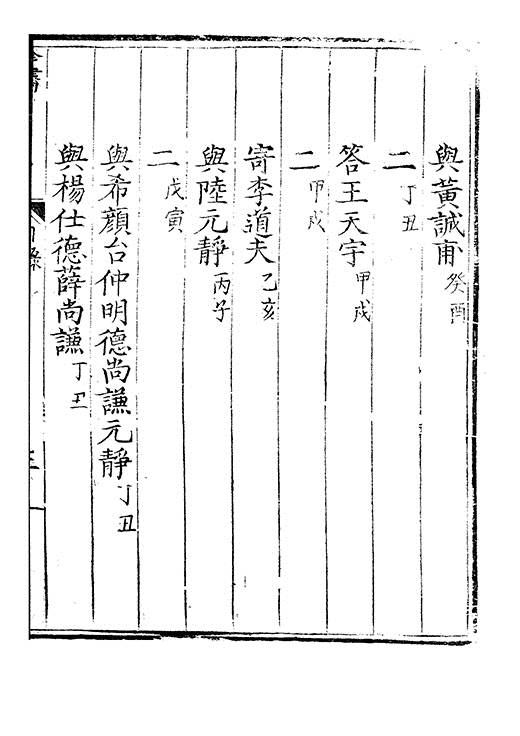 與黃誠甫 癸酉
二 丁丑
答王天宇 甲戌
二 甲戌
寄李道夫 乙亥
與陸元靜 丙子
二 戊寅
與希顏台仲明德尚謙元靜 丁丑
與楊仕德薛尚謙 丁丑
目錄